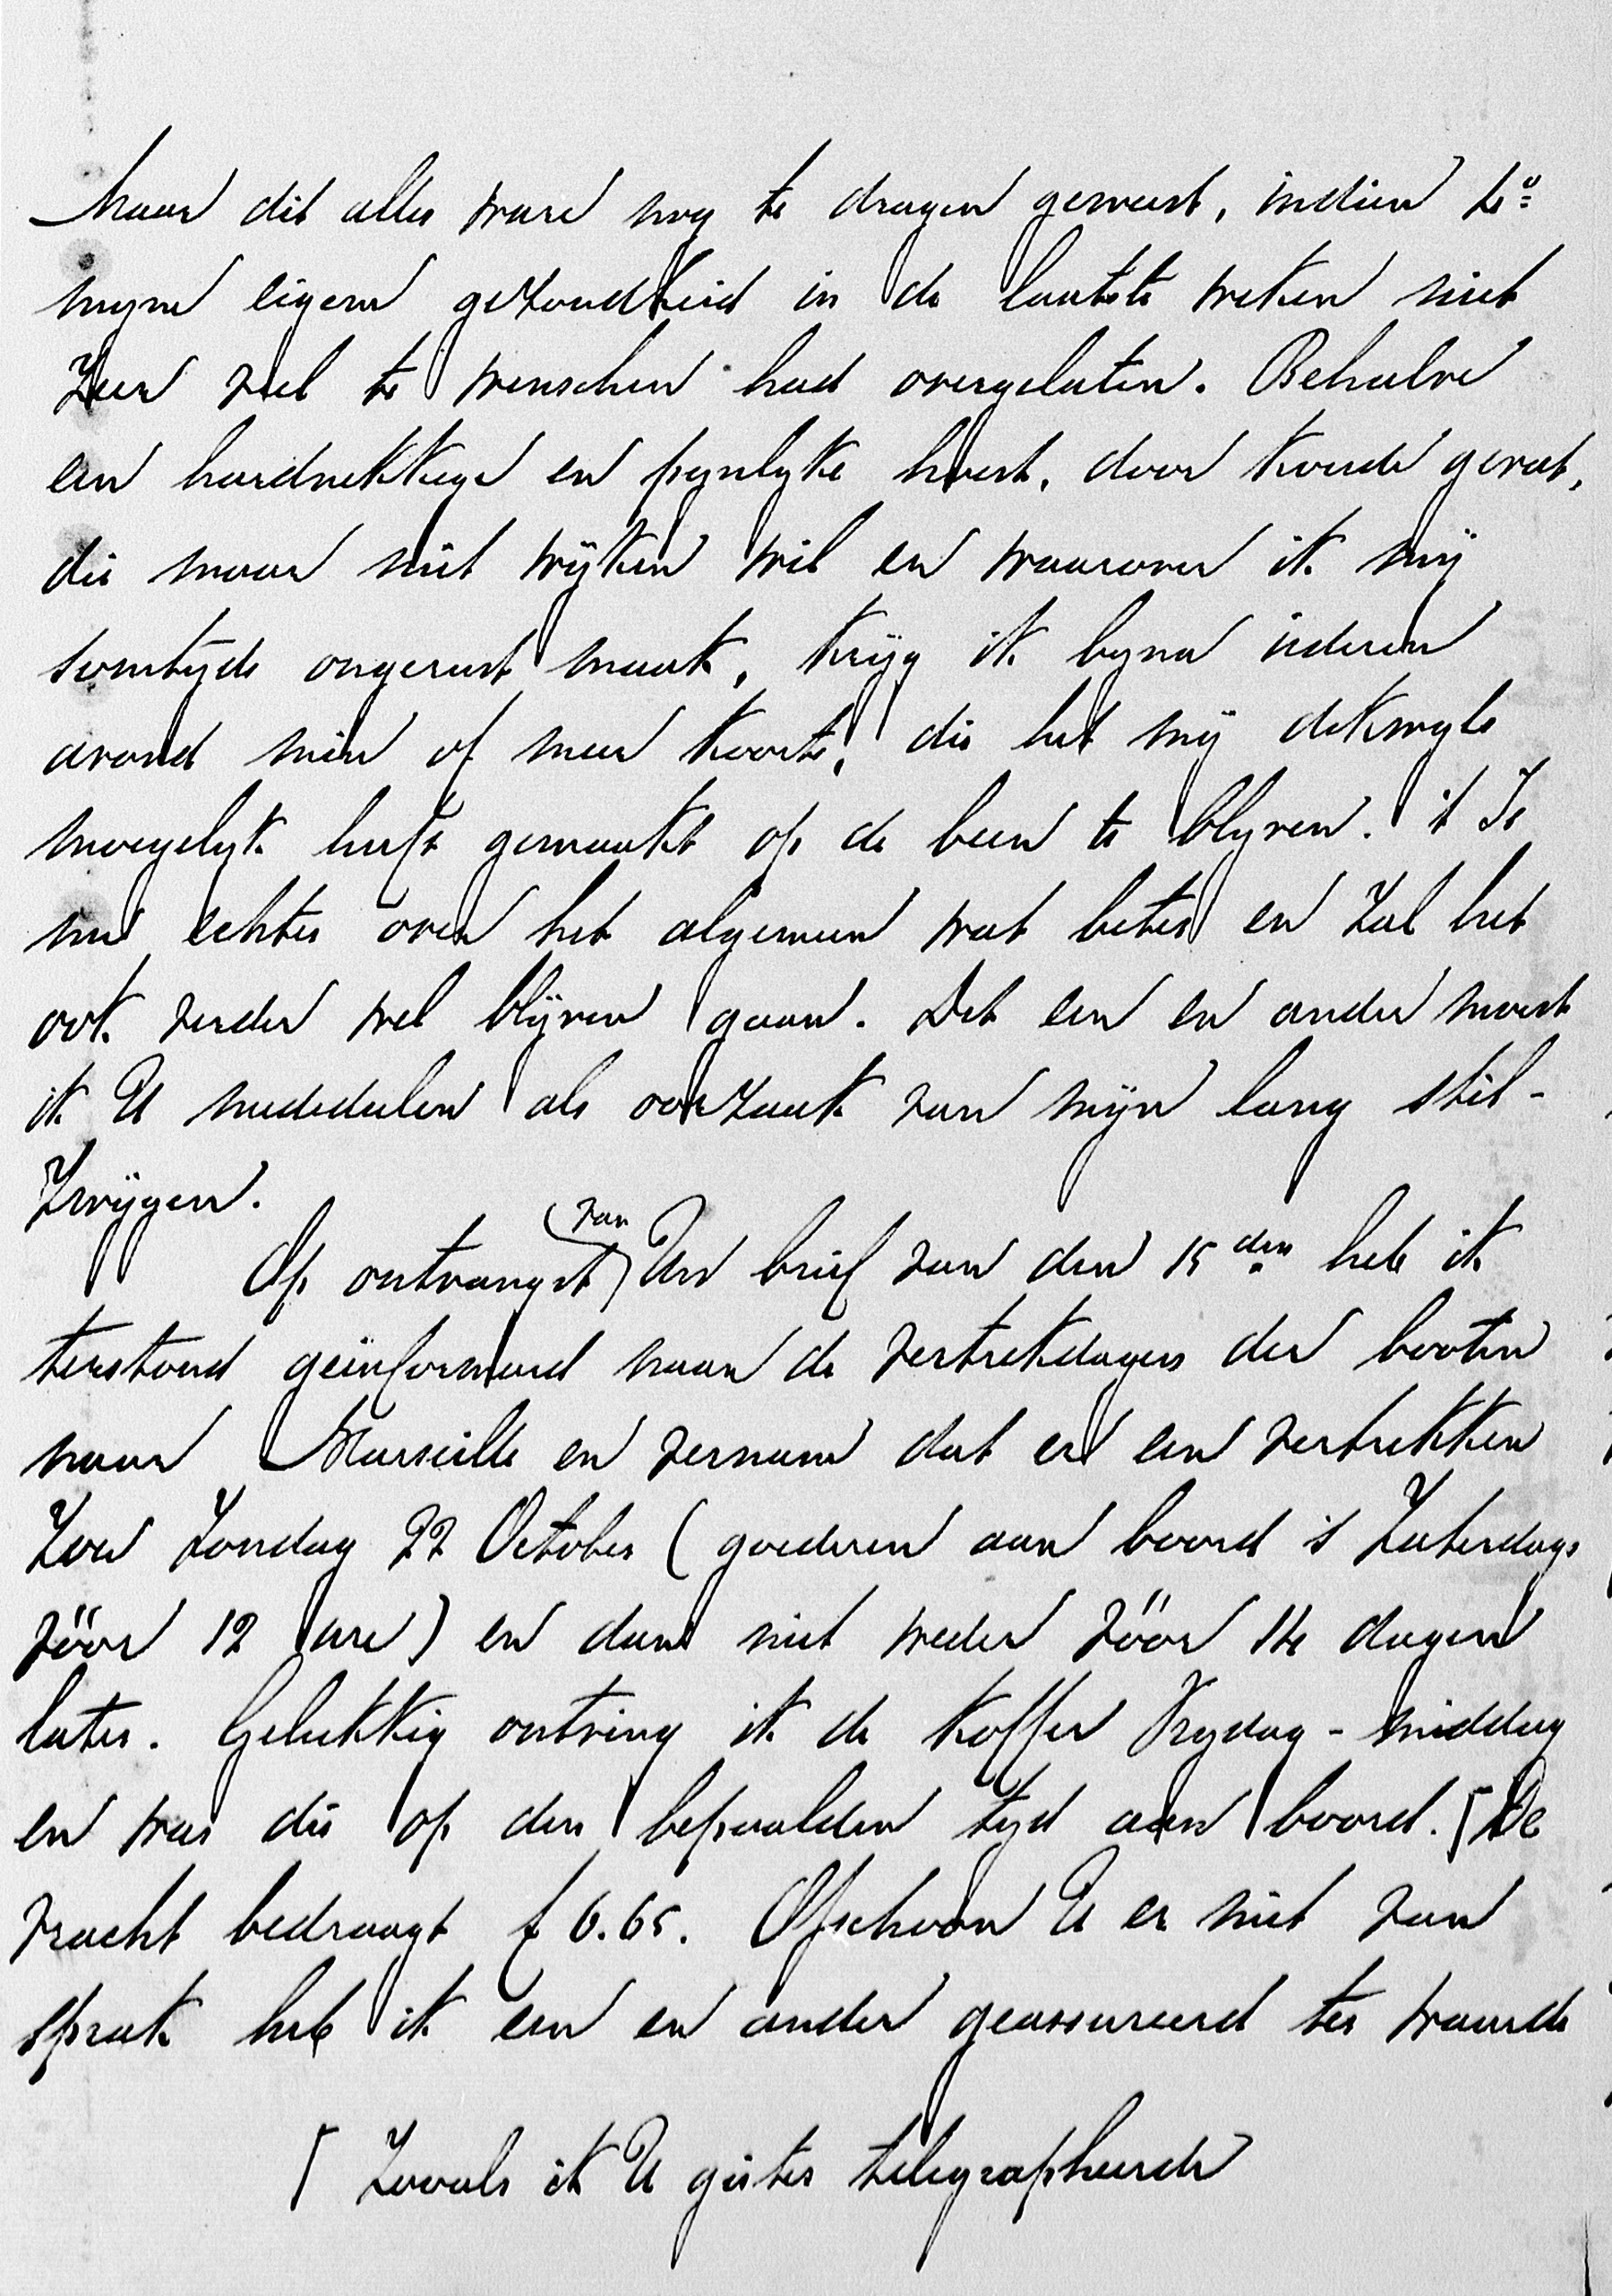 Maar dit alles ware nog te dragen geweest, indien
mijne eigene gezondheid in de laatste weken niet
zeer veel te wenschen had overgelaten. Behalve
een hardnekkige en pijnlyke hoest, door koude gevat,
die maar niet wijken wil en waarover ik mij
somtijds ongerust maak, krijg ik byna iederen
avond min of meer koorts, die het mij dikwyls
moeyelyk heeft gemaakt op de been te blyven. 't Is
nu echter over het algemeen wat beter en zal het
ook verder wel blijven gaan. Dit een en ander moest
ik U mededeelen als oorzaak van mijn lang stil-
zwijgen.
Op ontvangst van Uw brief van den 15den heb ik
terstond geïnformeerd naar de vertrekdagen der booten
naar Marseille en vernam dat er een vertrekken
zou Zondag 22 October (goederen aan boord 's Zaterdags
vóór 12 ure) en dan niet weder vóór 14 dagen
later. Gelukkig ontving ik de koffer Vrydag-middag
en was die op den bepaalden tyd aan boord. ⌈ De
vracht bedraagt f 6.65. Ofschoon U er niet van
sprak heb ik een en ander geassureerd ter waarde
⌈ Zooals ik U gister telegrapheerde